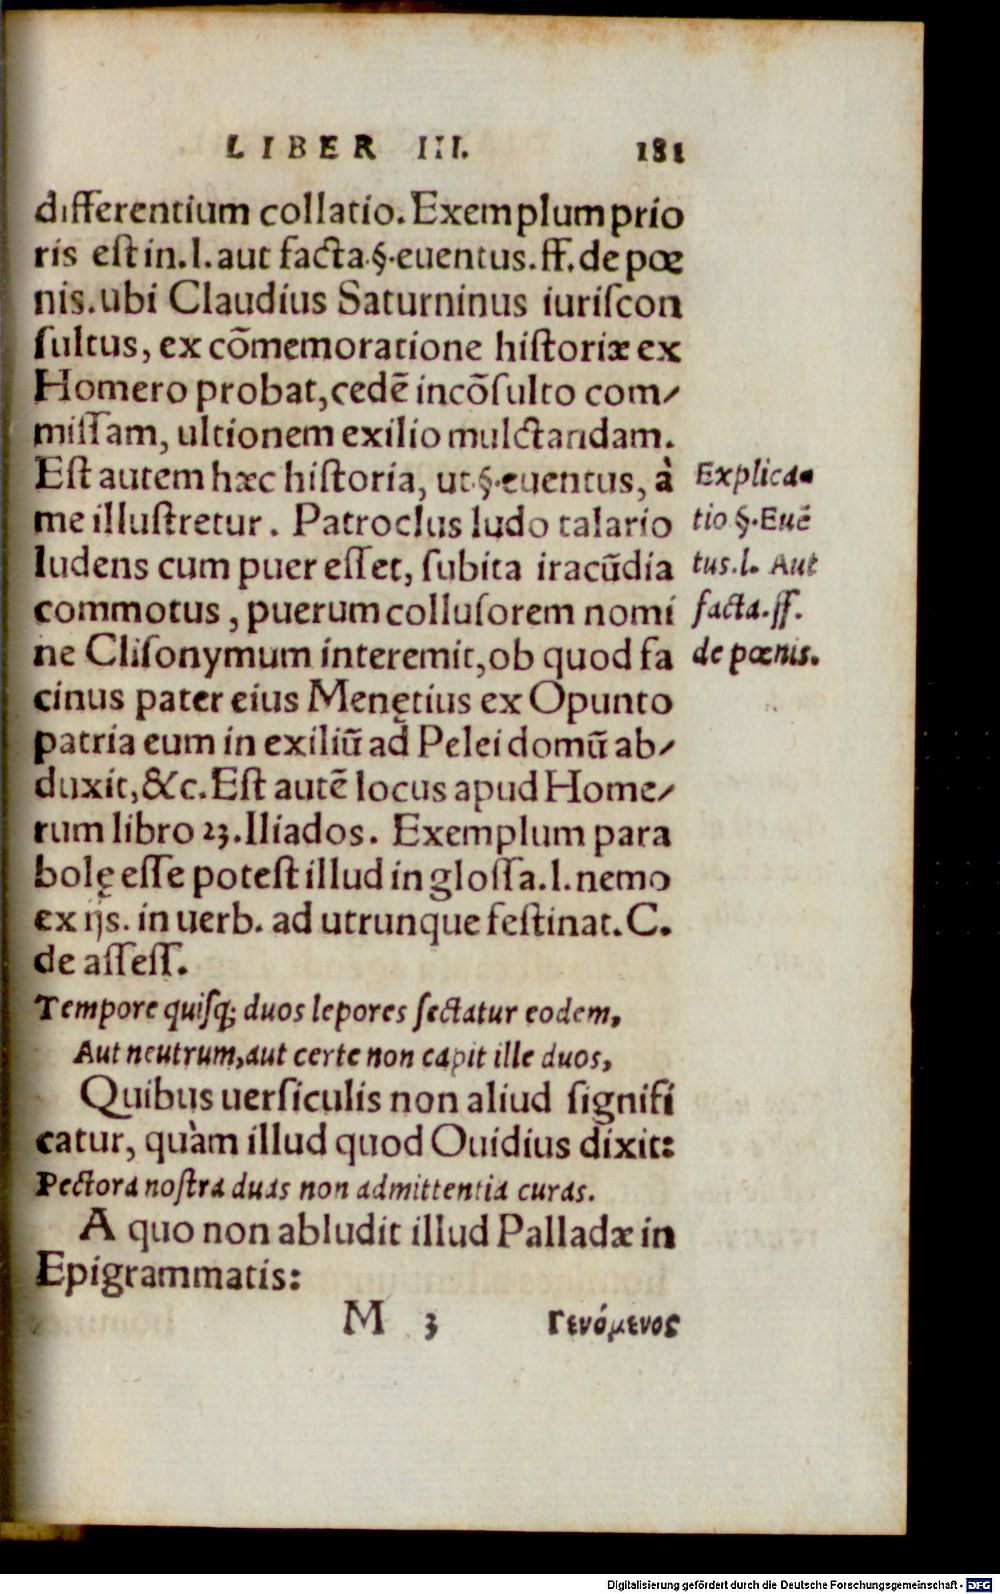 LIBER III. 181
differentium collatio. Exemplum prio
ris est in. l. aut facta.§.euentus. ff. de pœ
nis. ubi Claudius Saturninus iuriscon
sultus, ex cõmemoratione historiæ ex
Homero probat, cedẽ incõsulto com/
missam, ultionem exilio mulctandam.
Est autem hæc historia, ut.§.euentus, à
me illustretur. Patroclus ludo talario
ludens cum puer esset, subita iracũdia
commotus, puerum collusorem nomi
ne Clisonymum interemit, ob quod fa
cinus pater eius Menętius ex Opunto
patria eum in exiliũ ad Pelei domũ ab/
duxit, &c. Est autẽ locus apud Home/
rum libro 23. Iliados. Exemplum para
bolę esse potest illud in glossa. l. nemo
ex ijs. in uerb. ad utrunque festinat. C.
de assess.
Explica-
tio §. Euẽ
tus. l. Aut
facta. ff.
de pœnis.
Tempore quisq; duos lepores sectatur eodem,
Aut neutrum, aut certe non capit ille duos,
Quibus uersiculis non aliud signifi
catur, quàm illud quod Ouidius dixit:
Pectora nostra duas non admittentia curas.
A quo non abludit illud Palladæ in
Epigrammatis:
M 3 Γενόμενος
Digitalisierung gefördert durch die Deutsche Forschungsgemeinschaft - DFG